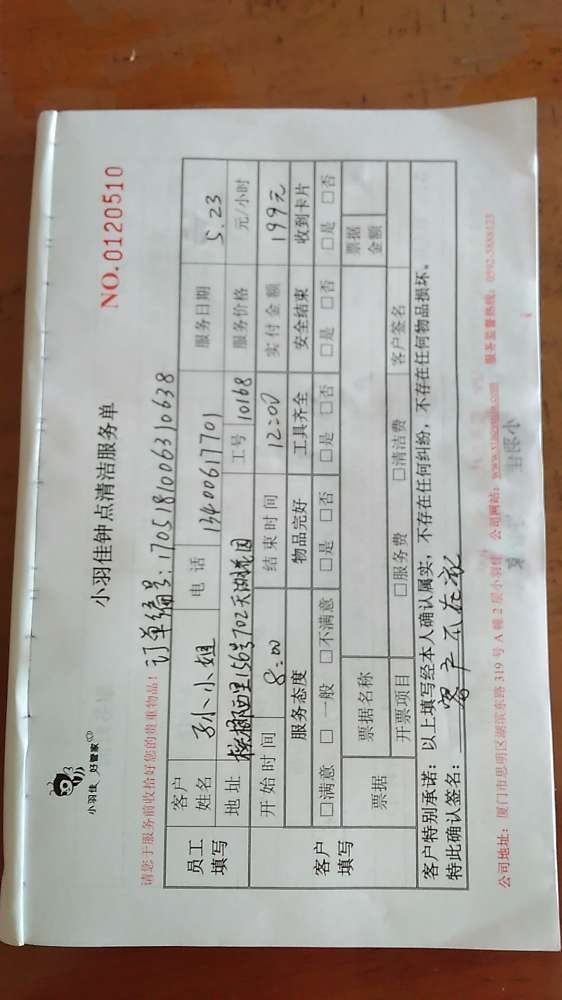 小羽佳 好管家
小羽佳钟点清洁服务单
NO.0120510
请您于服务前收拾好您的贵重物品！
订单编号：1705181006310638
员工填写 客户姓名 孙小姐 电话 13400617701 服务日期 5.23
地址 槟榔西里156号702天湖花园 工号 10168 服务价格 元/小时
开始时间 8:00 结束时间 12:00 实付金额 199元
客户填写 服务态度 物品完好 工具齐全 安全结束 收到卡片
□满意 □一般 □不满意 □是 □否 □是 □否 □是 □否 □是 □否
票据 票据名称 票据金额
开票项目 □服务费 □清洁费 客户签名
客户特别承诺：以上填写经本人确认属实，不存在任何纠纷，不存在任何物品损坏。
特此确认签名： 客户不在家
公司地址：厦门市思明区湖滨东路319号A幢2层小羽佳 公司网站： 服务监督热线：0592-5888123